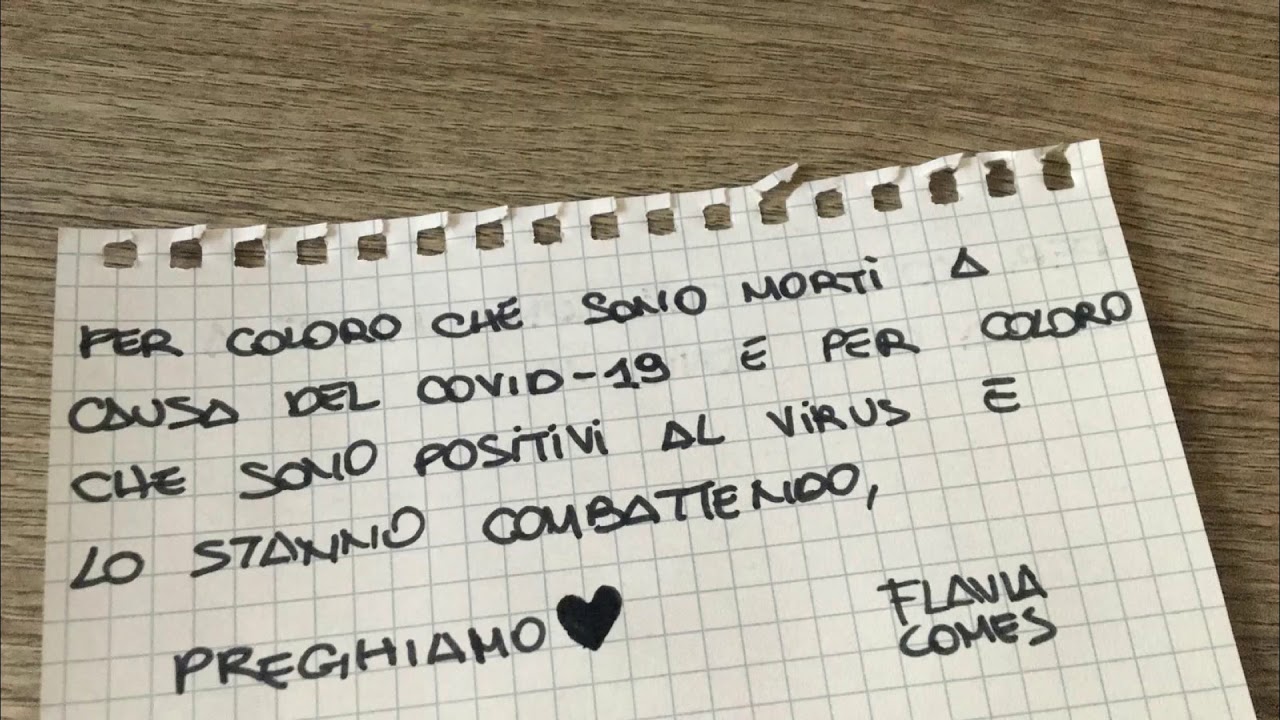 PER COLORO CHE SONO MORTI A
CAUSA DEL COVID-19 E PER COLORO
CHE SONO POSITIVI AL VIRUS E
LO STANNO COMBATTENDO,
PREGHIAMO ♥
FLAVIA
COMES